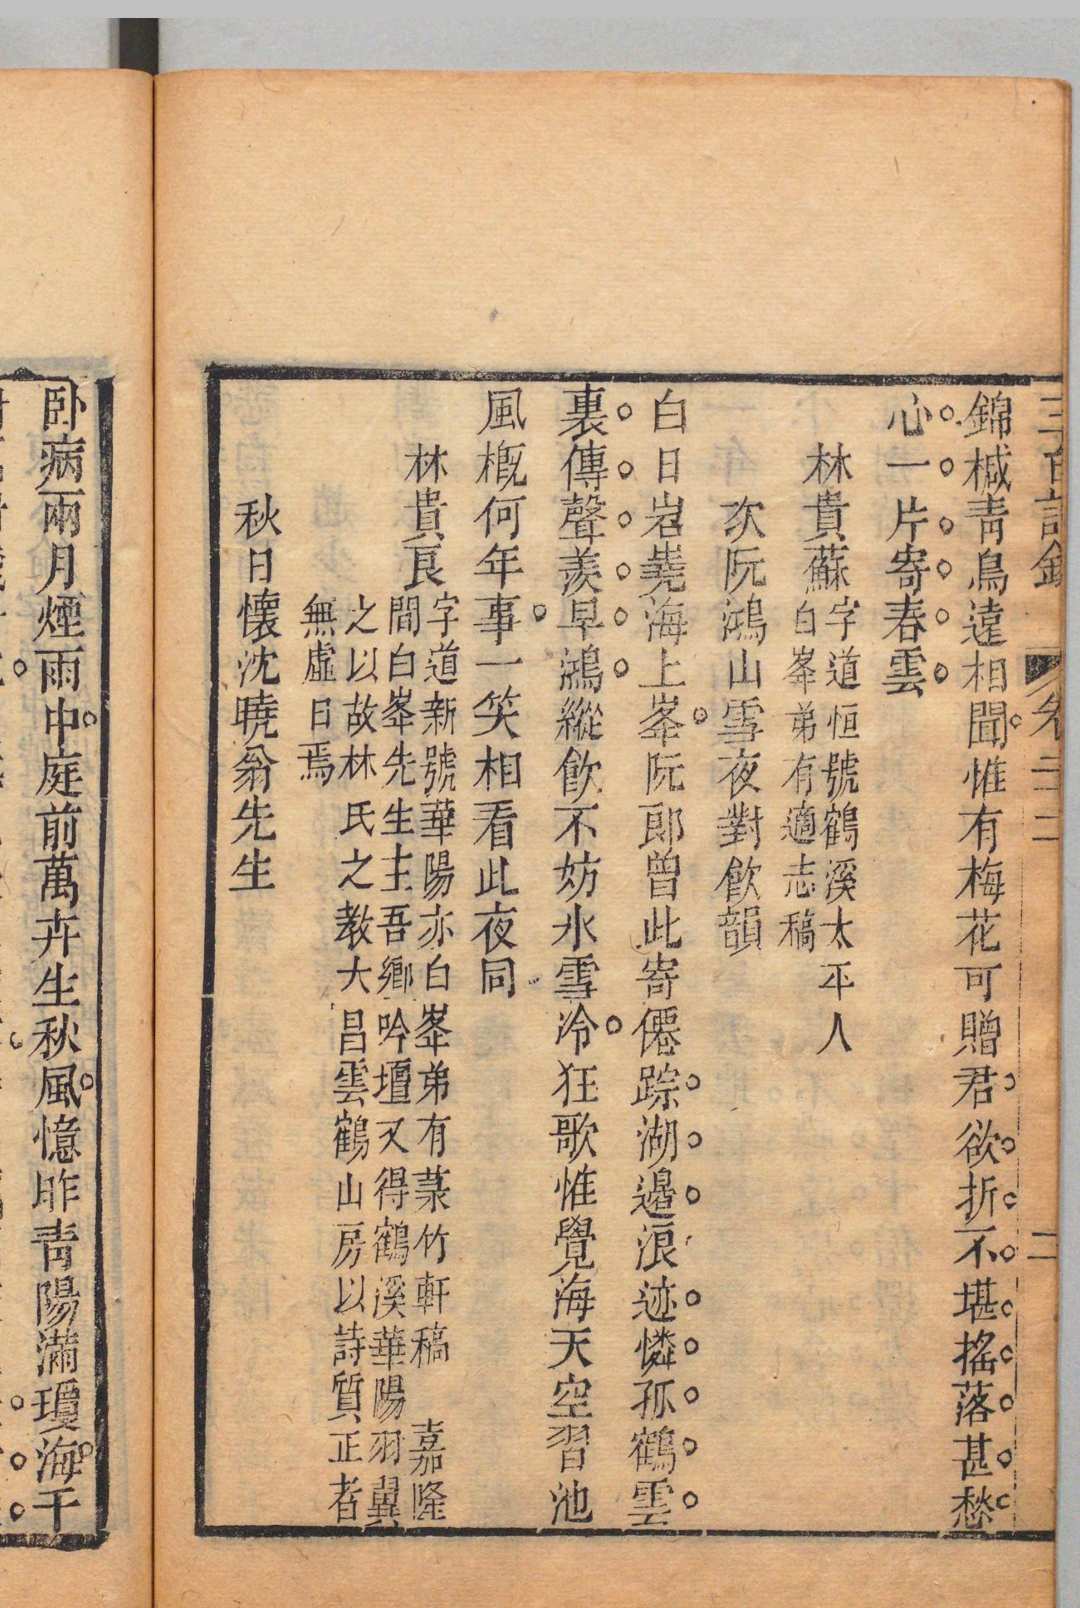 錦椷靑鳥遠相聞惟有梅花可贈君欲折不堪搖落甚愁
心一片寄春雲
林貴蘇
字道恒號鶴溪太平人
白峯弟有適志稿
次阮鴻山雪夜對飮韻
白日岧嶤海上峯阮郞曾此寄僊踪湖邉浪迹憐孤鶴雲
裏傳聲羨早鴻縱飮不妨氷雪冷狂歌惟覺海天空習池
風槪何年事一笑相看此夜同
林貴良
字道新號華陽亦白峯弟有菉竹軒稿 嘉隆
間白峯先生主吾鄉吟壇又得鶴溪華陽羽翼
之以故林氏之敎大昌雲鶴山房以詩質正者
無虛日焉
秋日懷沈曉翁先生
卧病兩月煙雨中庭前萬卉生秋風憶昨靑陽滿瓊海干